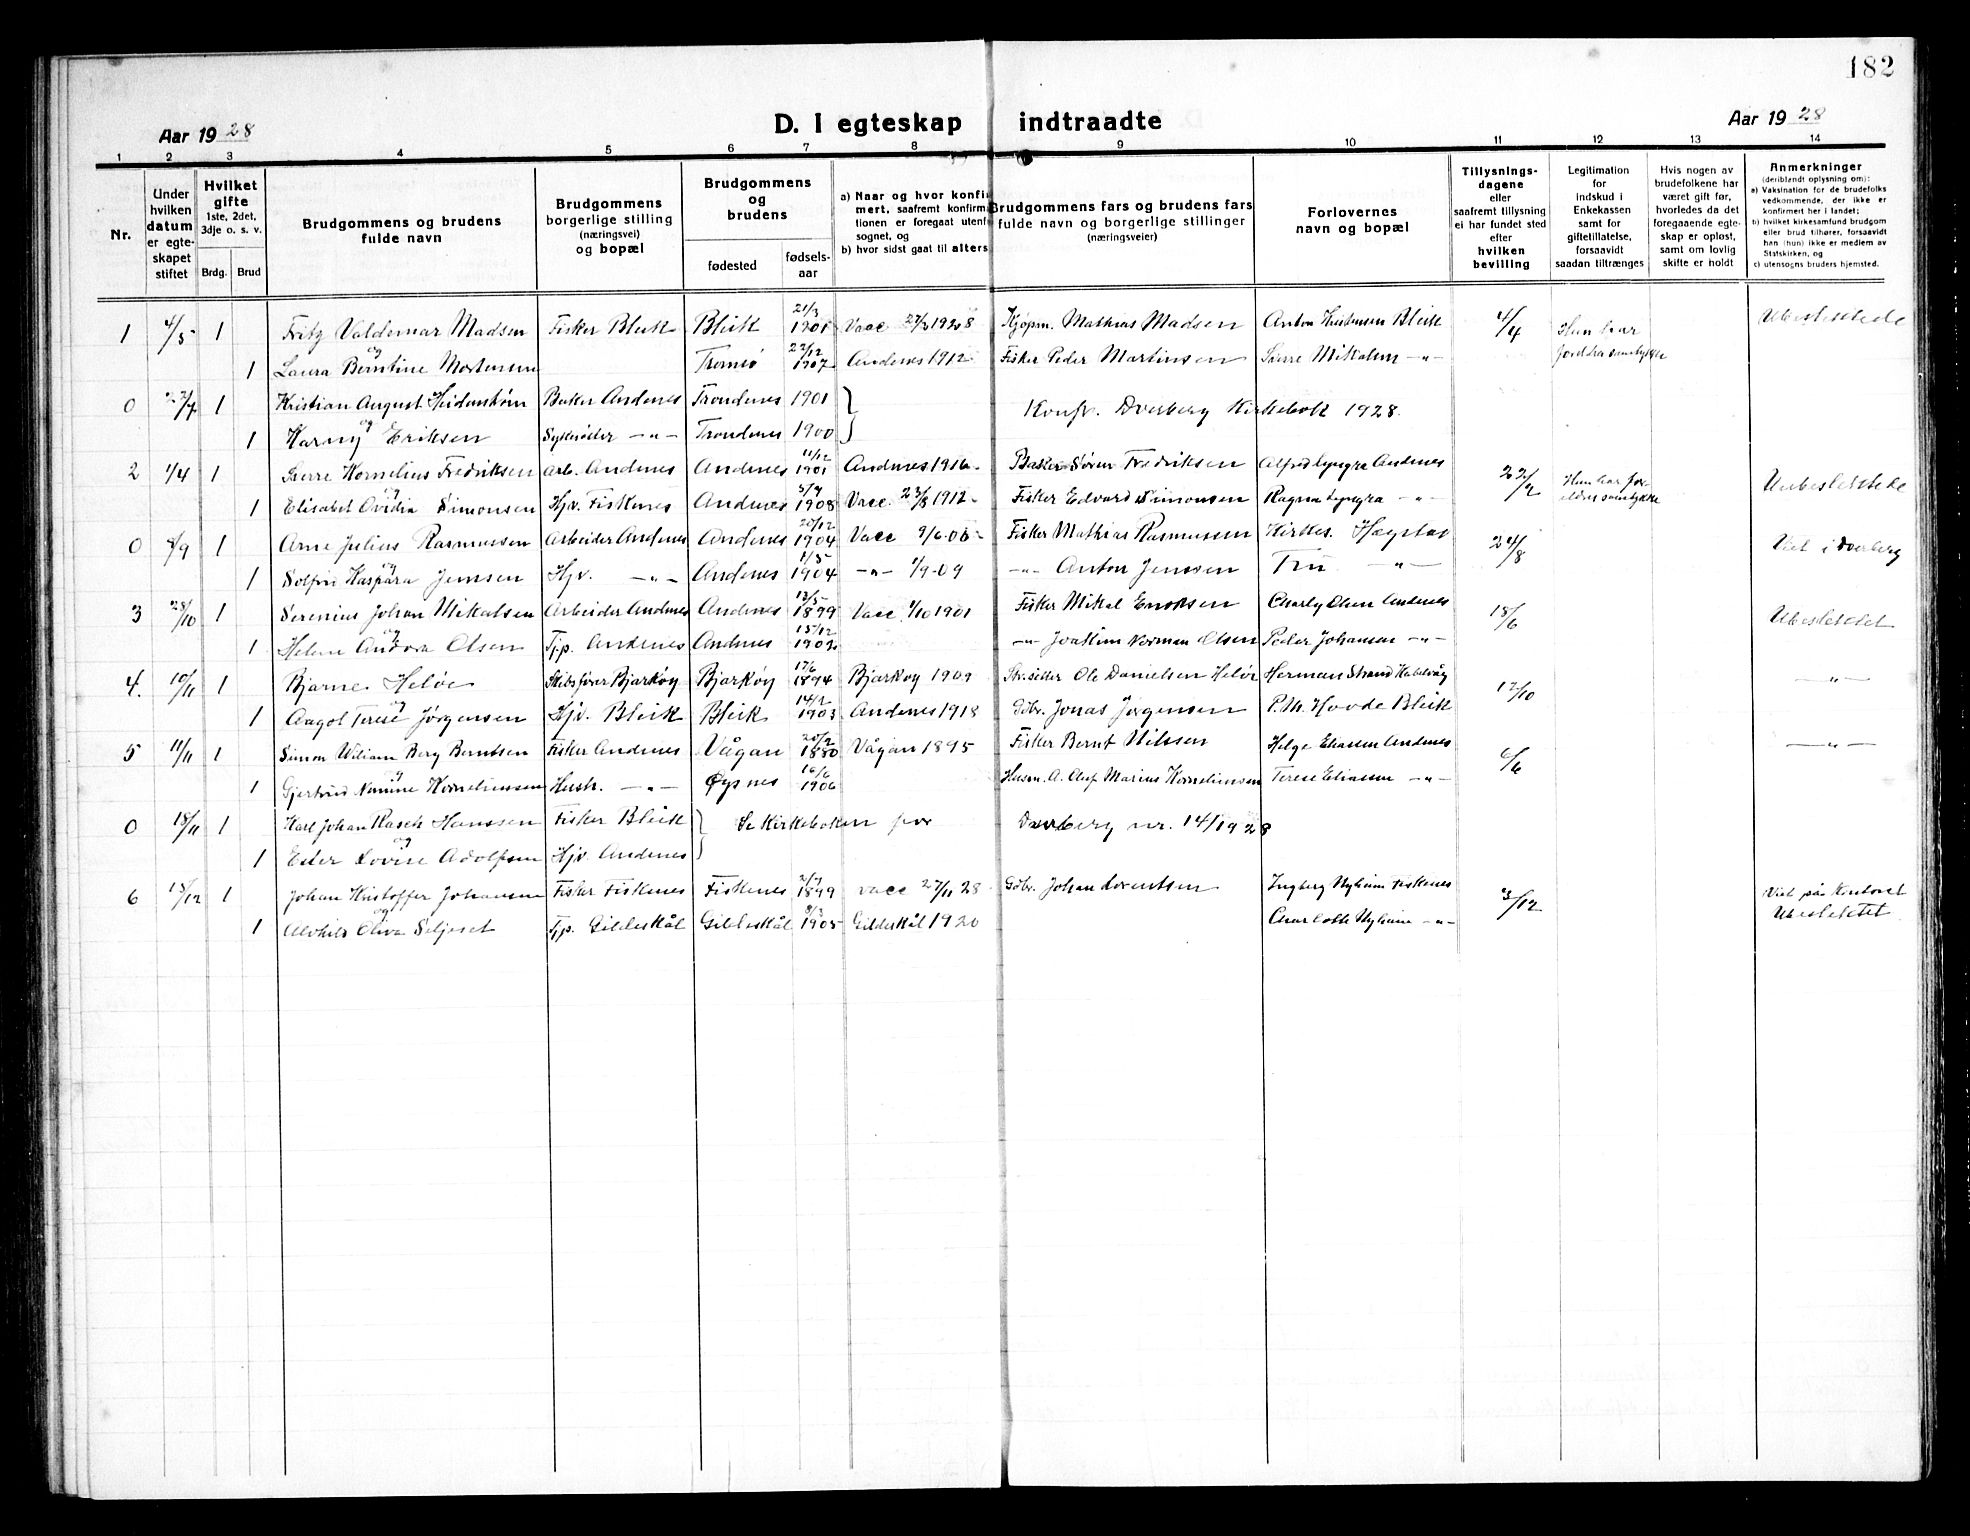 182
Aar 19 28 D. I egteskap indtraadte Aar 19 28
1 2 3 4 5 6 7 8 9 10 11 12 13 14
Nr.
Under hvilken datum er egteskapet stiftet
Hvilket gifte 1ste, 2det, 3dje o. s. v.
Brdg. Brud
Brudgommens og brudens fulde navn
Brudgommens borgerlige stilling (næringsvei) og bopæl
Brudgommens og brudens
fødested fødselsaar
a) Naar og hvor konfirmert, saafremt konfirmationen er foregaat utenf sognet, og
b) hvor sidst gaat til alters
Brudgommens fars og brudens fars fulde navn og borgerlige stillinger (næringsveier)
Forlovernes navn og bopæl
Tillysningsdagene eller saafremt tillysning ei har fundet sted efter hvilken bevilling
Legitimation for Indskud i Enkekassen samt for giftetillatelse, forsaavidt saadan tiltrænges
Hvis nogen av brudefolkene har været gift før, hvorledes da det foregaaende egteskap er opløst, samt om lovlig skifte er holdt
Anmerkninger (deriblandt oplysning om):
a) Vaksination for de brudefolks vedkommende, der ikke er konfirmert her i landet;
b) hvilket kirkesamfund brudgom eller brud tilhører, forsaavidt han (hun) ikke er medlem av Statskirken, og
c) utensogns bruders hjemsted.
1 4/5 1 Fritz Valdemar Madsen Fisker Bleik Bleik 21/3 1901 Vacc. 1928 Kjøpm. Mathias Madsen Anton Kristensen Bleik 4/4 Hun har Ubeslektede
og
1 Laura Berntine Mortensen Tromsø 22/12 1907 Andenes 1912 Fisker Peder Martinsen Sverre Mikalsen -"-
0 22/7 1 Kristian August Heidenstrøm Baker Andenes Trondenes 1901 Konfr. Dverberg Kirkebok 1928
og
1 Karny Eriksen -"- Trondenes 1900
2 1/4 1 Sverre Kornelius Fredriksen Arb. Andenes Andenes 11/12 1901 Andenes 1916 Baker Søren Fredriksen Alfred Lyngra Andenes 22/2 Hun har foreldres samtykke Ubeslektede
og
1 Elisabet Ovidia Simonsen Hjv. Fiskenes Andenes 5/9 1908 Vacc. 23/8 1912 Fisker Edvard Simonsen Ragna Lyngra -"-
0 8/9 1 Arne Julius Rasmussen Arbeider Andenes Andenes 20/12 1904 Vacc 9/6-06 Fisker Mathias Rasmussen Kirkes. Hægstad 24/8 Viet i Dverberg
og
1 Solfrid Kaspara Jensen Hjv. -"- Andenes 11/5 1904 -"- 1/9-09 -"- Anton Jenssen Fru -"-
3 28/10 1 Serenius Johan Mikalsen Arbeider Andenes Andenes 13/5 1899 Vacc. 7/10 1901 Fisker Mikal Enoksen Charly Olsen Andenes 18/6 Ubeslektet
og
1 Helene Andora Olsen Tjp. Andenes Andenes 15/12 1902 -"- Joakim Norman Olsen Peder Johansen -"-
4. 10/11 1 Bjarne Heløe Skibsfører Bjarkøy Bjarkøy 17/6 1894 Bjarkøy 1909 Ole Danielsen Heløe Herman Strand Kabelvåg 12/10 -"-
og
1 Aagot Terese Jørgensen Hjv. Bleik Bleik 14/2 1903 Andenes 1918 Gbr. Jonas Jørgensen P.M. Hovde Bleik
5 11/11 1 Simon Wiliam Berg Berntsen Fisker Andenes Vågan 20/2 1880 Vågan 1895 Fisker Bernt Nilssen Helge Eliassen Andenes 6/6 -"-
og
1 Gjertrud Nimine Kornelinssen Hush. -"- Øysnes 16/6 1906 Husm. A. Oluf Marius Kornelinssen Terese Eliassen -"-
0 18/11 1 Karl Johan Rasch Hanssen Fisker Bleik Se Kirkeboken for Dverberg nr. 14/1928
og
1 Ester Lovise Adolfsen Hjv. Andenes
6 15/12 1 Johan Kristoffer Johansen Fisker Fiskenes Fiskenes 2/7 1899 vacc 27/11 28 Gbr. Johan Lorentsen Ingberg Nyheim Fiskenes 3/12 Viet på Kontoret
og
1 Alvhild Oliva Seljeset Tjp. Gildeskål Gildeskål 8/3 1905 Gildeskål 1920 Charlotte Nyheim -"- Ubeslektet